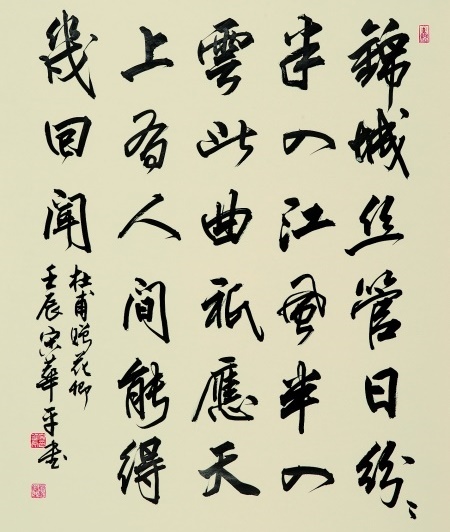 錦城丝管日紛々
半入江風半入
雲此曲祇應天
上有人間能得
幾回聞
杜甫贈花卿
壬辰宋華平書